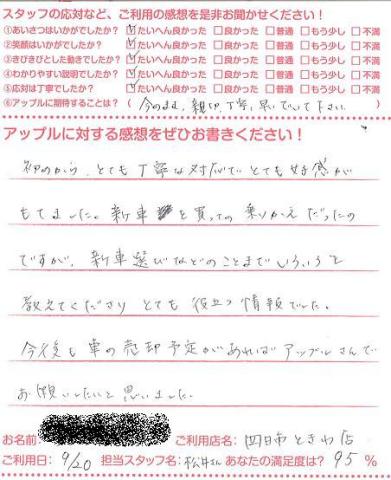 スタッフの応対など、ご利用の感想を是非お聞かせください！
①あいさつはいかがでしたか？ ☑たいへん良かった □良かった □普通 □もう少し □不満
②笑顔はいかがでしたか？ ☑たいへん良かった □良かった □普通 □もう少し □不満
③きびきびとした動きでしたか？ ☑たいへん良かった □良かった □普通 □もう少し □不満
④わかりやすい説明でしたか？ ☑たいへん良かった □良かった □普通 □もう少し □不満
⑤応対は丁寧でしたか？ ☑たいへん良かった □良かった □普通 □もう少し □不満
⑥アップルに期待することは？ （ 今のまま、親切、丁寧、早いでいて下さい。 ）
アップルに対する感想をぜひお書きください！
初めから、とても丁寧な対応でとても好感が
もてました。新車を買っての乗りかえだったの
ですが、新車選びなどのことまでいろいろと
教えてくださり とても役立つ情報でした。
今後も車の売却予定があればアップルさんで
お願いしたいと思いました。
お名前 ご利用店名: 四日市ときわ店
ご利用日: 9/20 担当スタッフ名: 松井さん あなたの満足度は? 95%